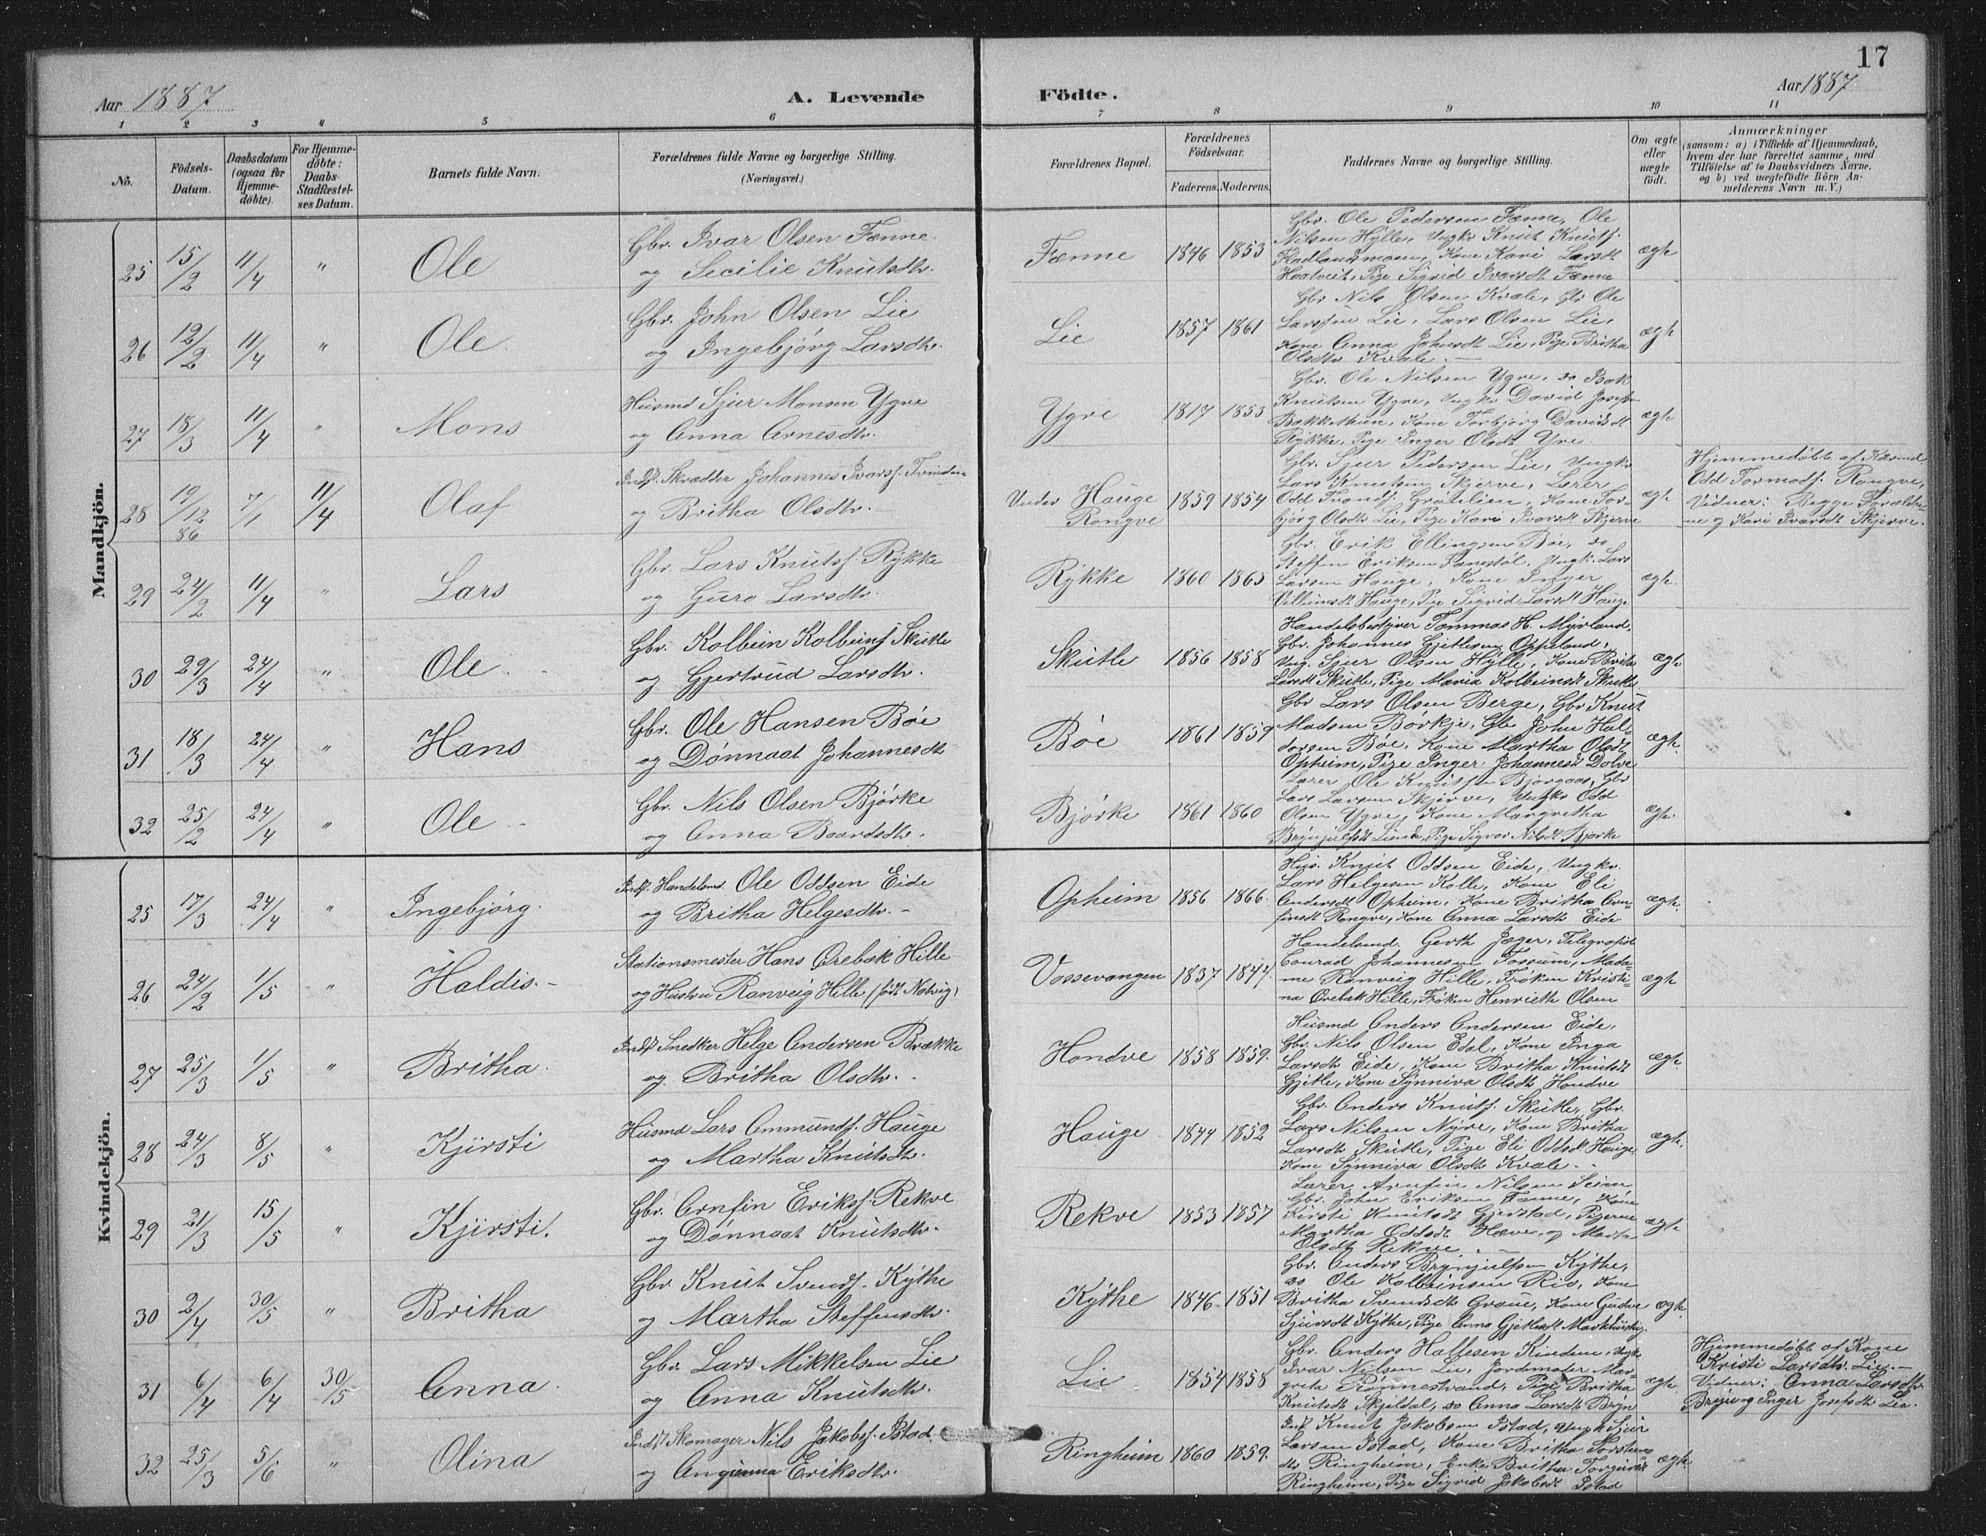 17
Aar 1887
A. Levende
Födte.
Aar 1887
1 2 3 4 5 6 7 8 9 10 11
No.
Födsels-Datum.
Daabsdatum (ogsaa for Hjemmedöbte).
For Hjemmedöbte: Daabs-Stadfæstelses Datum.
Barnets fulde Navn.
Forældrenes fulde Navne og borgerlige Stilling. (Næringsvei.)
Forældrenes Bopæl.
Forældrenes Födselsaar.
Faderens. Moderens.
Faddernes Navne og borgerlige Stilling.
Om ægte eller uægte født.
Anmærkninger
(saasom: a) i Tilfælde af Hjemmedaab, hvem der har forrettet samme, med Tilföielse af to Daabsvidners Navne, og b) ved uægtefödte Börn Anmelderens Navn m. V.)
Mandkjön.
25 15/2 11/4 " Ole
Gbr. Ivar Olsen Fænne
og Secilie Knutsdtr.
Fænne 1846 1853
Gbr. Ole Pedersen Fænne, Ole
Nilsen Hylle, Ungk. Knut Knuts.
Kone Kari Larsdt
Pige Sigrid Ivarsdt Fænne
ægte
26 12/2 11/4 " Ole.
Gbr. John Olsen Lie
og Ingebjörg Larsdtr.
Lie 1857 1861
Gbr Nils Olsen Kvale, Gbr Ole
Larssen Lie, Lars Olsen Lie,
Kone Anna Johnsdt Lie, Pige Britha
Olsdtr Kvale.
ægte
27 18/3 11/4 " Mons
Husmd Sjur Monsen Ygre
og Anna Arnesdtr.
Ygre 1817 1853
Gbr. Ole Nilsen Ygre, so
Knutsen Ygre, Ungk. David Josefs.
Kone Torbjörg Davidsdt
Rykke, Pige Inger Olsdt Yre
ægte
28 19/12 86 7/1 11/4 Olaf
Inds. Skrædder Johannes Ivarss. Tvinden
og Britha Olsdtr.
Under Hauge Rongve 1859 1854
Gbr. Sjur Pedersen Lie, Ungk.
Lars Knutsen Skjerve, Lærer
Odd Trondsf. Grönlien, Kone Tor-
björg Olsdtr Lie, Pige Kari Ivarsdt Skjerve
ægte
Hjemmedöbt af Husmd
Odd Tormodsf. Rongve,
Vidner: Begge Forældre-
ne og Kari Ivarsdt Skjerve.
29 24/2 11/4 " Lars
Gbr. Lars Knutsf. Rykke
og Guro Larsdtr.
Rykke 1860 1865
Gbr. Erik Ellingsen Böe, so
Steffen Eriksen Ungk. Lars
Larsen Hauge, Kone Inger
Villumsdt Hauge, Pige Sigrid Larsdt Hauge
ægte.
30 29/3 24/4 " Ole
Gbr. Kolbein Kolbeinsf Skutle
og Gjertrud Larsdtr.
Skutle 1856 1858
Handelsbestyrer Tommas H. Myrland,
Gbr. Johannes Gjetlesen Oppeland,
Ung. Sjur Olsen Hylle, Kone Brita
Larsdt Skutle, Pige Maria Kolbeinsdt Skutle
ægte
31 18/3 24/4 " Hans
Gbr. Ole Hansen Böe
og Dönnaat Johannesdt
Böe 1861 1859
Gbr Lars Olsen Berge, Gbr Knut
Madsen Börkje, Gbr John Hal-
dorsen Böe, Kone Martha Olsdt
Opheim, Pige Inger Johannesdt Dolve
ægte.
32 25/2 24/4 " Ole
Gbr. Nils Olsen Bjørke
og Anna Baardsdtr.
Bjørke 1861 1860
Lærer Ole Knutsen Bjorgaas, Gbr
Lars Larsen Skjerve, Ungk. Odd
Olsen Ygre, Kone Margretha
Brynjulfsdt Linde, Pige Sigvor Nilsdt Bjørke
ægte.
Kvindekjön.
25 17/3 24/4 " Ingebjörg.
Inds. Handelsmd. Ole Oddsen Eide
og Britha Helgesdtr.
Opheim 1856 1866
Hus. Knut Oddsen Eide, Ungk.
Lars Helgesen Kolle, Kone Eli
Andersdt Opheim, Kone Britha Arn-
finsdt Rongve, Kone Anna Larsdt Eide
ægte.
26 24/2 1/5 " Haldis.
Stationsmester Hans Örebæk Hille
og Hustru Ranveig Hille (födt Natvig)
Vossevangen 1837 1844.
Handelsmd. Gerth Jæger, Telegrafist
Conrad Johannesen Fossum, Mada-
me Ranveig Hille, Fröken Kristi-
na Örebæk Hille, Fröken Henriette Olsen
ægte
27 25/3 1/5 " Britha.
Inds. Snedker Helge Andersen Brække
og Britha Olsdtr.
Hondve 1858 1859.
Husmd Anders Andersen Eide,
Gbr. Nils Olsen Edal, Kone Inga
Larsdt Eide, Kone Britha Knutsdt
Gjetle, Kone Synniva Olsdt Hondve
ægte.
28 24/3 8/5 " Kjirsti
Husmd Lars Ommundsf. Hauge
og Martha Knutsdtr.
Hauge 1844 1852
Gbr. Anders Knutsf. Skutle, Gbr.
Lars Nilsen Nyre, Kone Britha
Larsdt Skutle, Pige Eli Oddsdt Hauge,
Kone Synniva Olsdt Kvale.
ægte.
29 21/3 15/5 " Kjirsti.
Gbr. Arnfin Eriksf. Rekve
og Dönnaat Knutsdtr.
Rekve 1853 1857
Lærer Arnfin Nilsen Seim
Gbr. John Eriksen Fænne, Kone
Kirsti Knutsdt Gjerstad, Pigerne
Martha Oddsdt Hæve, og Marta
Olsdt Rekve.
ægte
30 2/4 30/5 " Britha
Gbr. Knut Svendsf. Kythe
og Martha Steffensdtr.
Kythe 1846 1851
Gbr. Anders Brynjulfsen Kythe,
so Ole Kolbeinsen Rio, Kone
Britha Svendsdt Graue, Kone Gudve
Sjursdt Kythe, Pige Anna Gjetlesdt
ægte.
31 6/4 6/4 30/5 Anna.
Gbr Lars Mikkelsen Lie
og Anna Knutsdtr.
Lie 1854 1858
Gbr. Anders Hallesen Kinden, Ungk
Ivar Nilsen Lie, Jordmoder Mar-
grete Rönnestrand, Pige Britha
Knutsdt Skjeldal, so Anna Larsdt Bryn
ægte.
Hjemmedöbt af Kone
Kristi Larsdtr. Lie.
Vidner: Anna Larsdtr
Bryn og Inger Josefsdt Lie.
32 25/3 5/6 " Olina
Inds. Skomager Nils Jakobsf. Istad.
og Eriksdtr.
Ringheim 1860 1859.
Inds Knut Jakobsen Istad, Ungk Sjur
Larsen Istad, Kone Britha Torsteins-
dtr Ringheim, Enke Britha
Ringheim, Pige Sigrid Jakobsdt Istad
ægte.